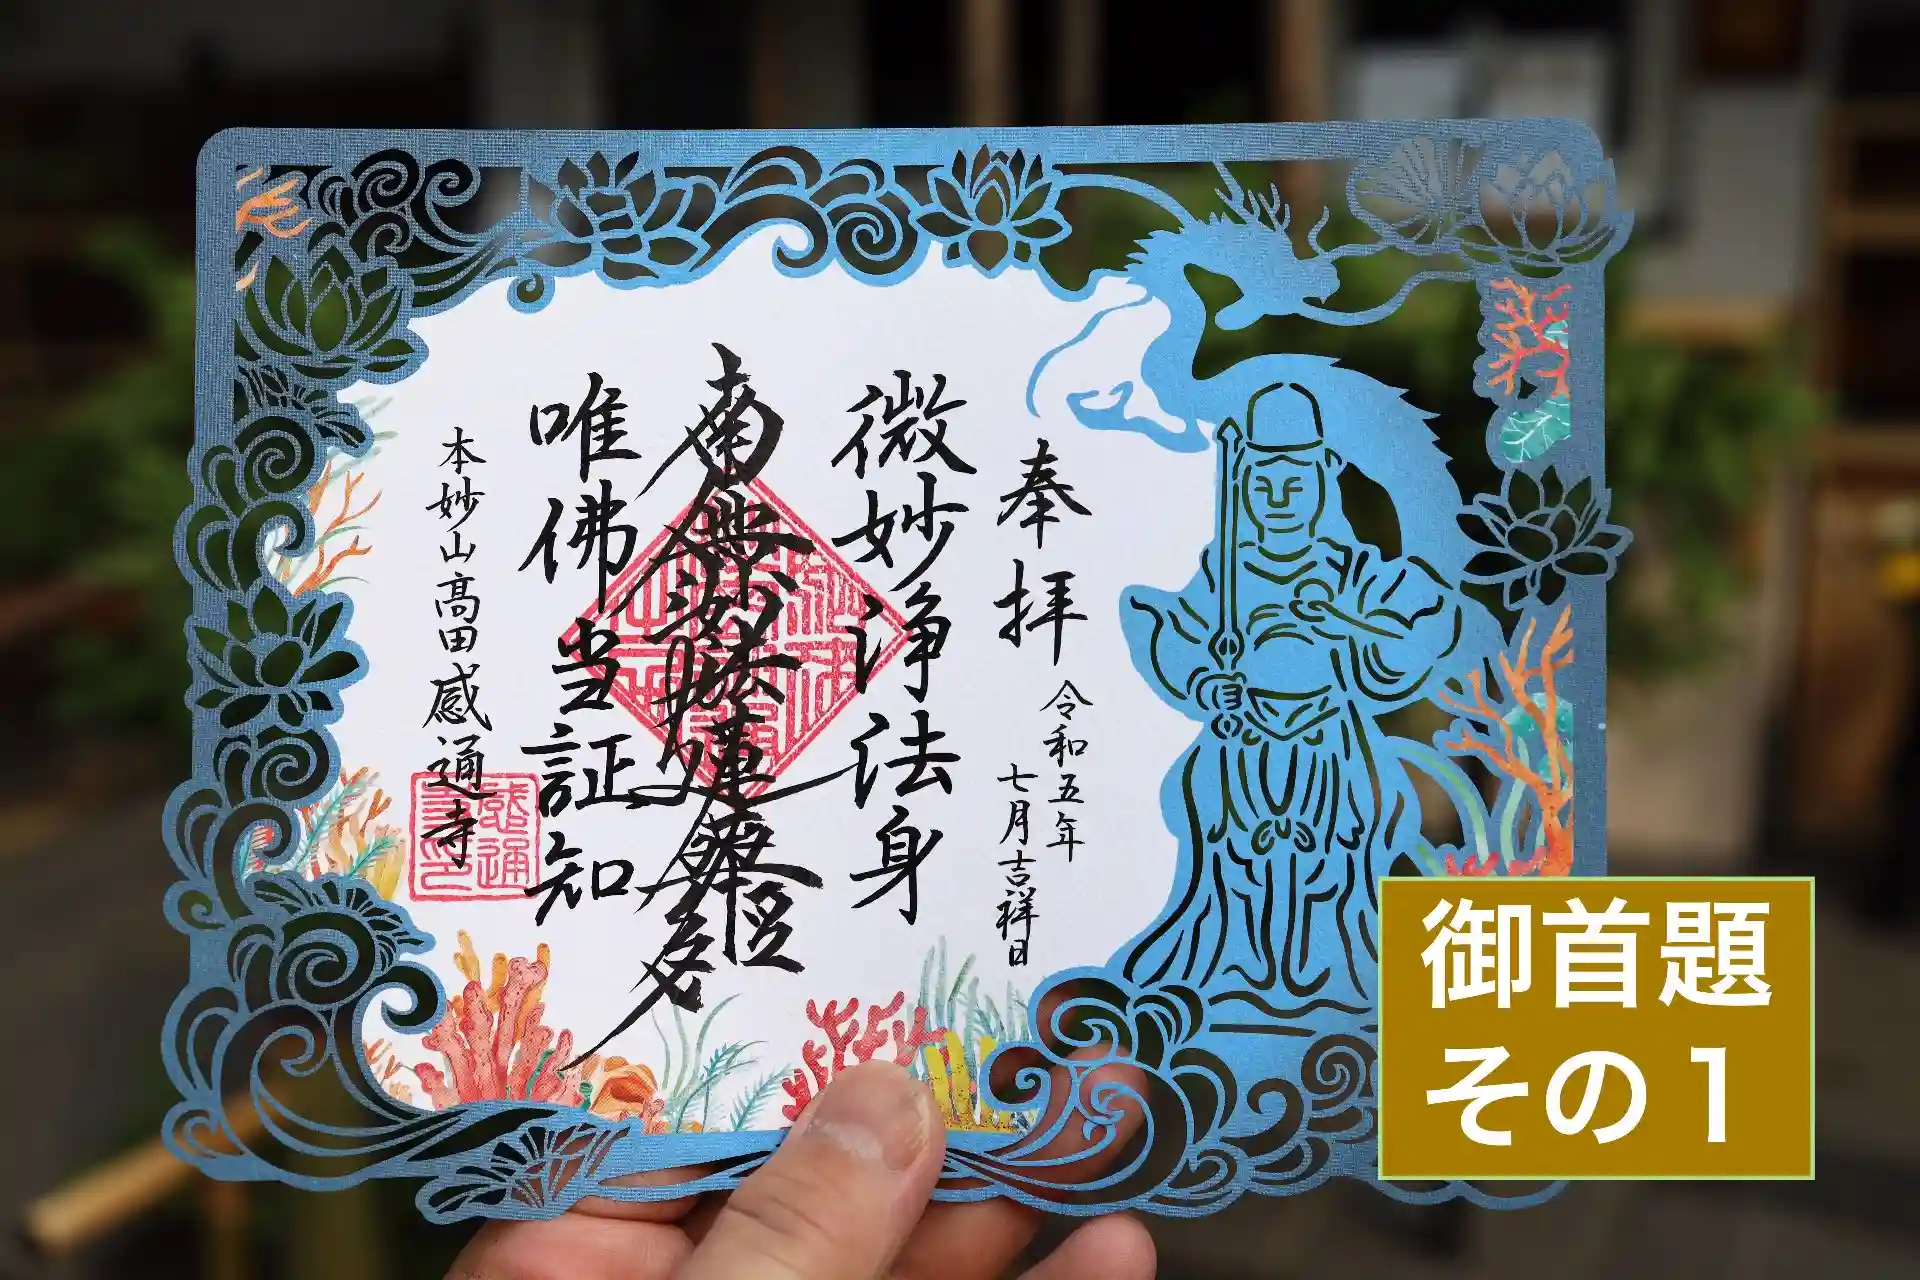 奉拝
令和五年
七月吉祥日
微妙浄法身
南無妙法蓮華経
唯佛当証知
本妙山高田感通寺
御首題
その1